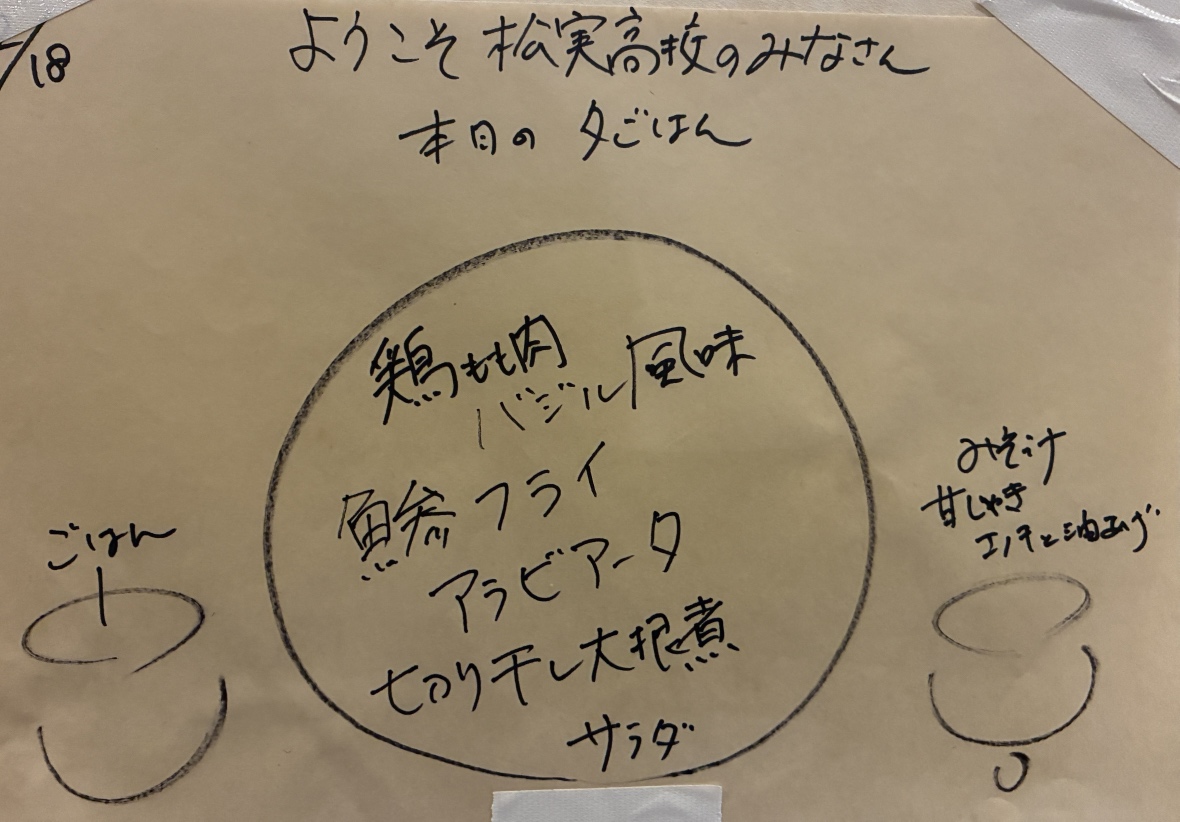 /18
ようこそ 松実高校のみなさん
本日の 夕ごはん
鶏もも肉
バジル風味
鯵フライ
アラビアータ
切り干し大根煮
サラダ
ごはん
エノキと油あげ